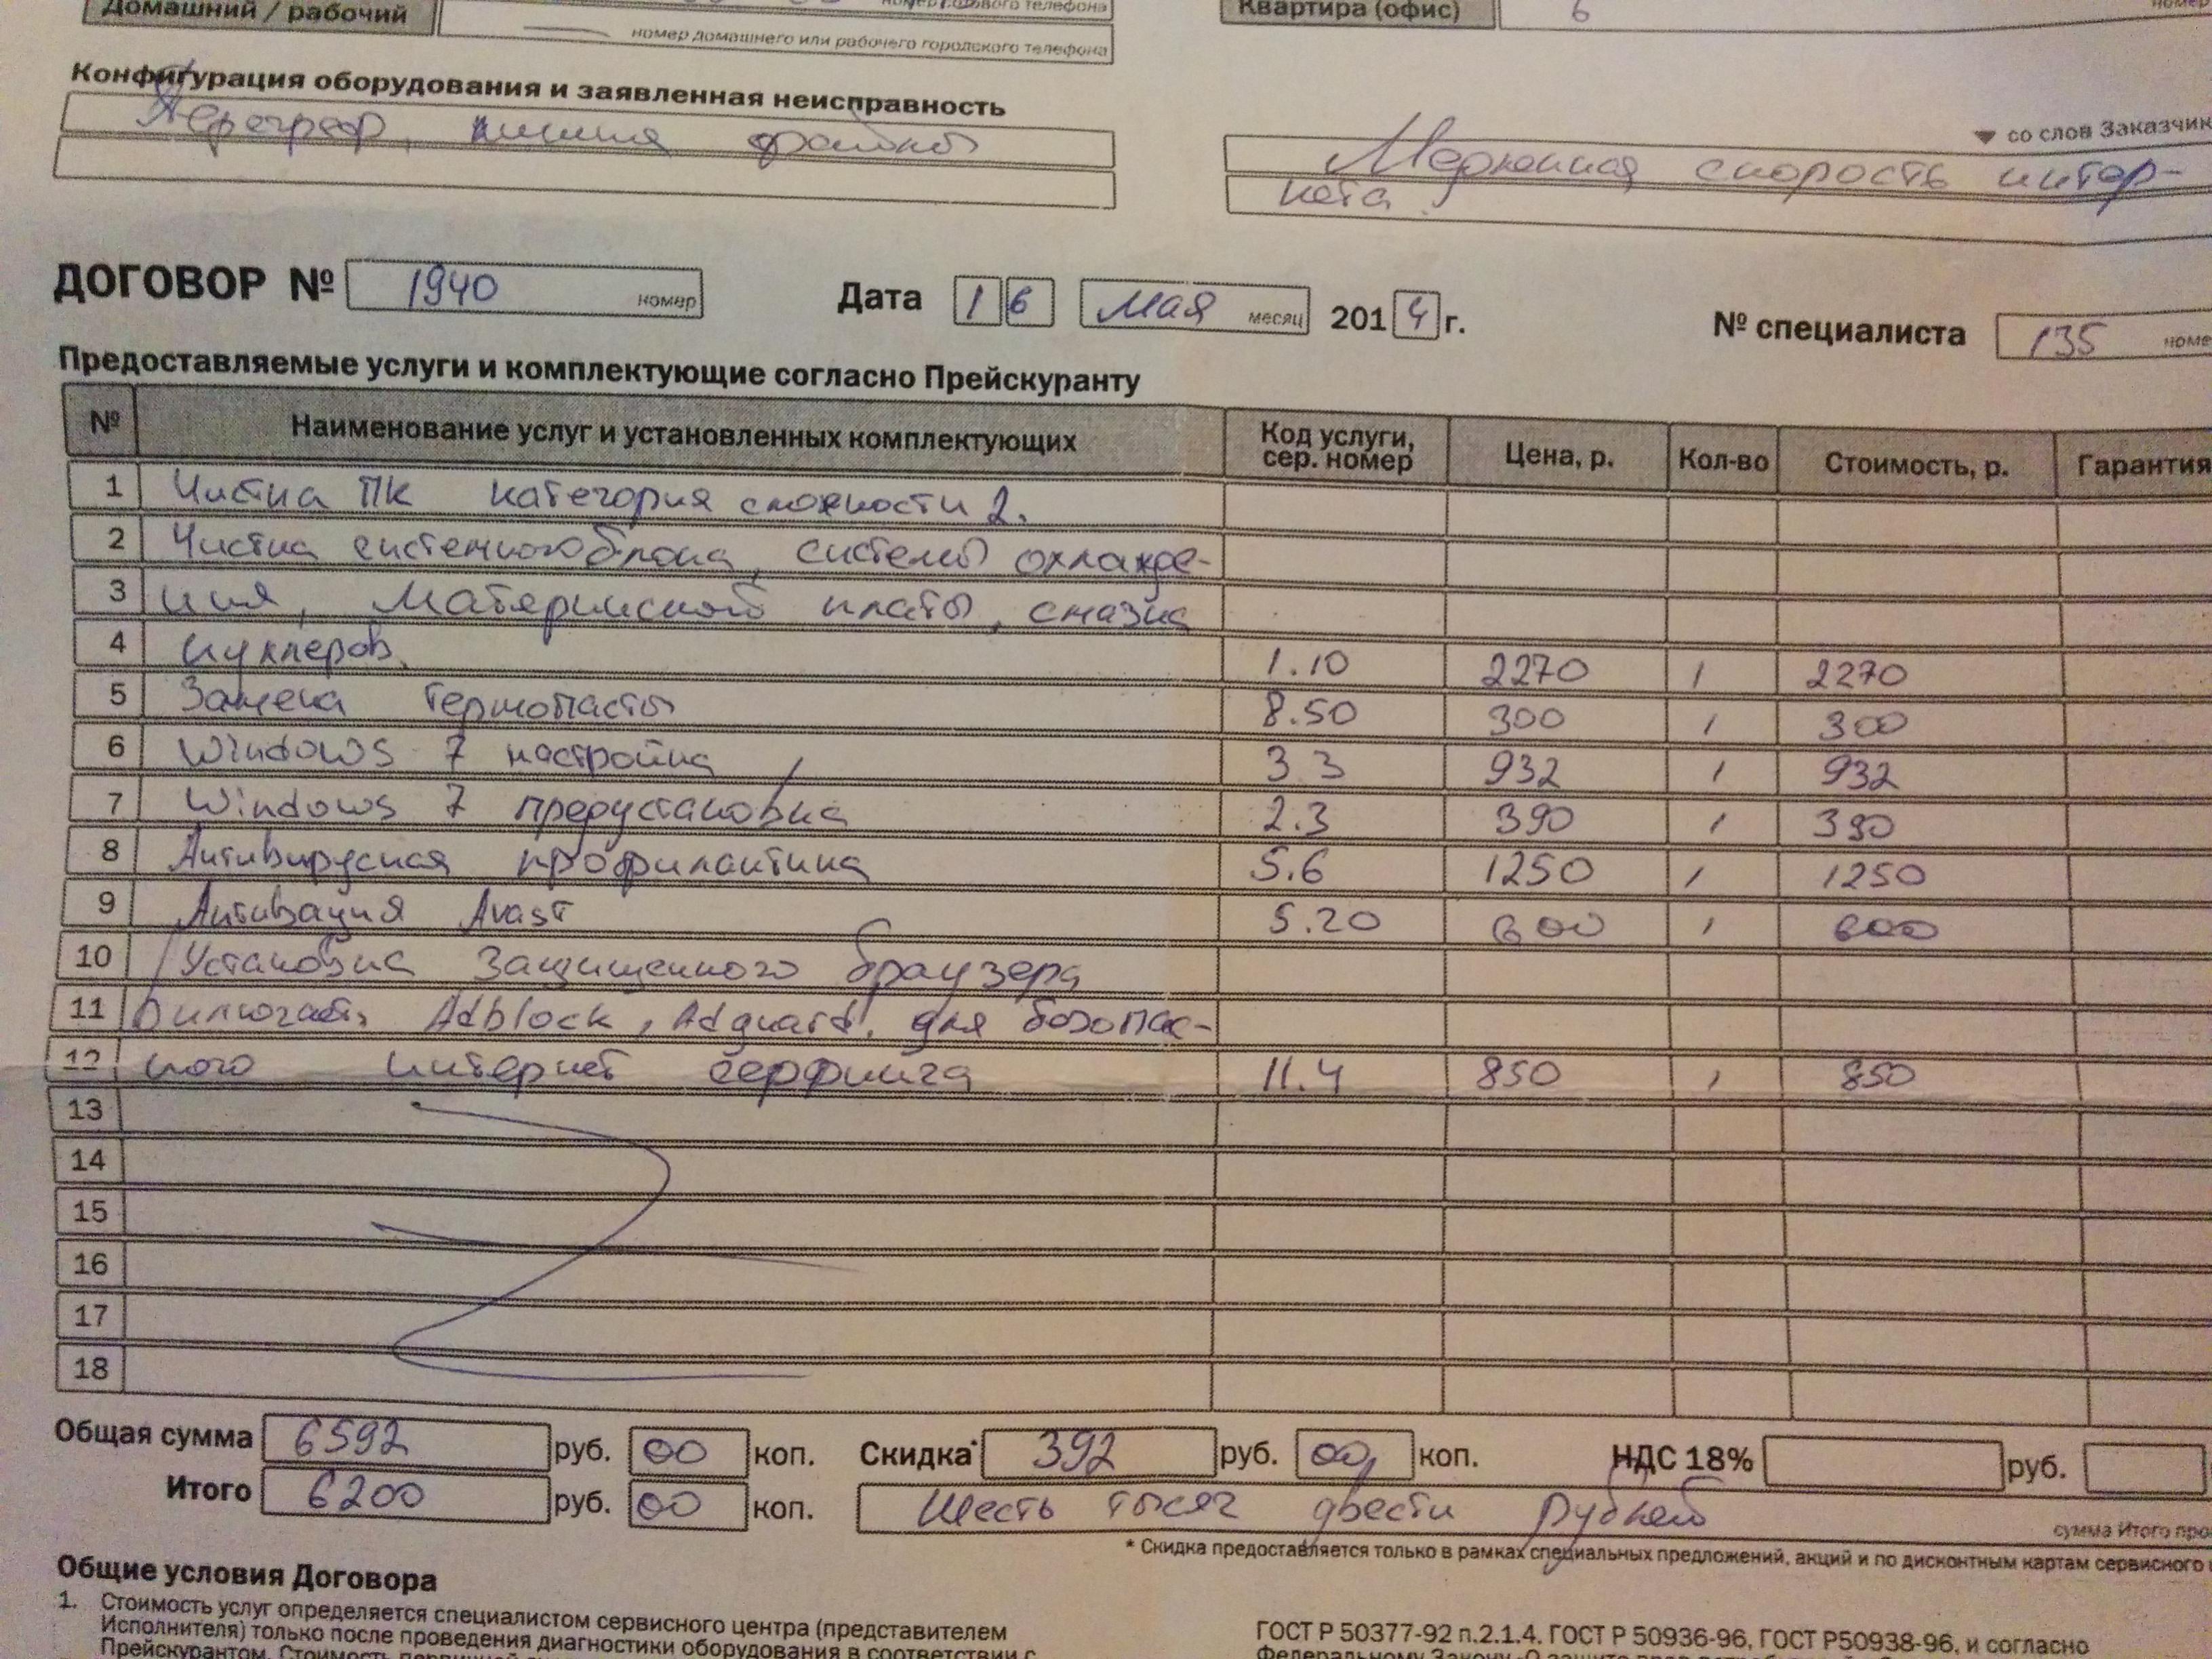 Домашний / рабочий
номер домашнего или рабочего городского телефона
Квартира (офис) 6
Конфигурация оборудования и заявленная неисправность
со слов Заказчик
Перегрев, чистка
Медленная скорость интер-
нета
ДОГОВОР № 1940 номер Дата 16 мая месяц 2014 г. № специалиста 135 номе
Предоставляемые услуги и комплектующие согласно Прейскуранту
№ Наименование услуг и установленных комплектующих Код услуги, сер. номер Цена, р. Кол-во Стоимость, р. Гарантия
1 Чистка ПК категория сложности 2.
2 Чистка системного блока, системы охлажде-
3 ния, материнской платы, смазка
4 куллеров. 1.10 2270 1 2270
5 Замена термопасты 8.50 300 1 300
6 Windows 7 настройка 3.3 932 1 932
7 Windows 7 предустановка 2.3 390 1 390
8 Антивирусная профилактика 5.6 1250 1 1250
9 Активация Avast 5.20 600 1 600
10 Установка защищенного браузера
11 включает Adblock, Adguard, для безопас-
12 ного интернет серфинга 11.4 850 1 850
13
14
15
16
17
18
Общая сумма 6592 руб. 00 коп. Скидка* 392 руб. 00 коп. НДС 18% руб.
Итого 6200 руб. 00 коп. Шесть тысяч двести рублей
сумма Итого про
* Скидка предоставляется только в рамках специальных предложений, акций и по дисконтным картам сервисного
Общие условия Договора
1. Стоимость услуг определяется специалистом сервисного центра (представителем
Исполнителя) только после проведения диагностики оборудования в соответствии с
Прейскурантом. Стоимость
ГОСТ Р 50377-92 п.2.1.4. ГОСТ Р 50936-96, ГОСТ Р50938-96, и согласно
Федеральному Закону «О защите прав